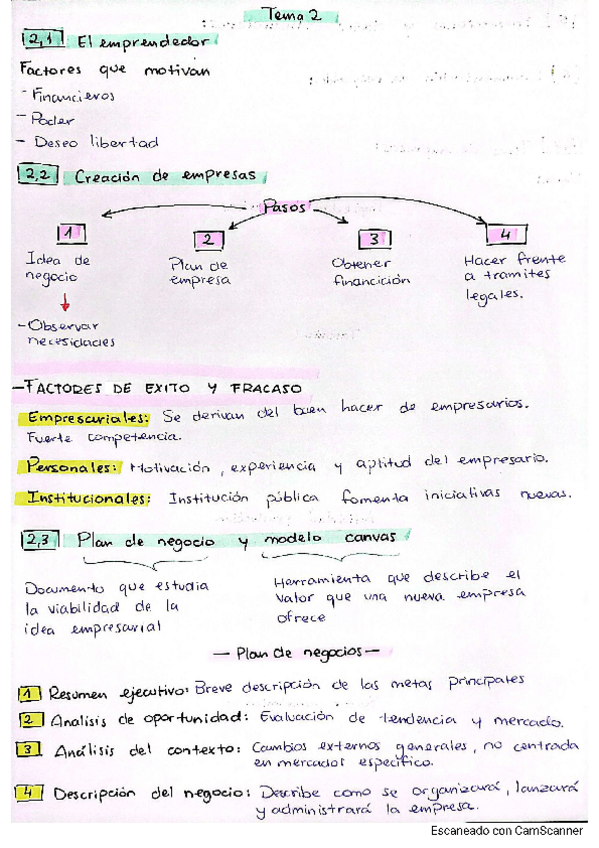 Tema 2
2,1 El emprendedor
Factores que motivan
- Financieros
- Poder
- Deseo libertad
2,2 Creación de empresas
Pasos
1 2 3 4
Idea de negocio
Plan de empresa
Obtener financición
Hacer frente a tramites legales.
- Observar necesidades
- FACTORES DE EXITO Y FRACASO
Empresariales: Se derivan del buen hacer de empresarios.
Fuerte competencia.
Personales: Motivación, experiencia y aptitud del empresario.
Institucionales: Institución pública fomenta iniciativas nuevas.
2,3 Plan de negocio y modelo canvas
Documento que estudia
la viabilidad de la
idea empresarial
Herramienta que describe el
valor que una nueva empresa
ofrece
— Plan de negocios —
1 Resumen ejecutivo: Breve descripción de las metas principales
2 Analisis de oportunidad: Evaluación de tendencia y mercado.
3 Análisis del contexto: Cambios externos generales, no centrada
en mercados específico.
4 Descripción del negocio: Describe como se organizará, lanzará
y administrará la empresa.
Escaneado con CamScanner